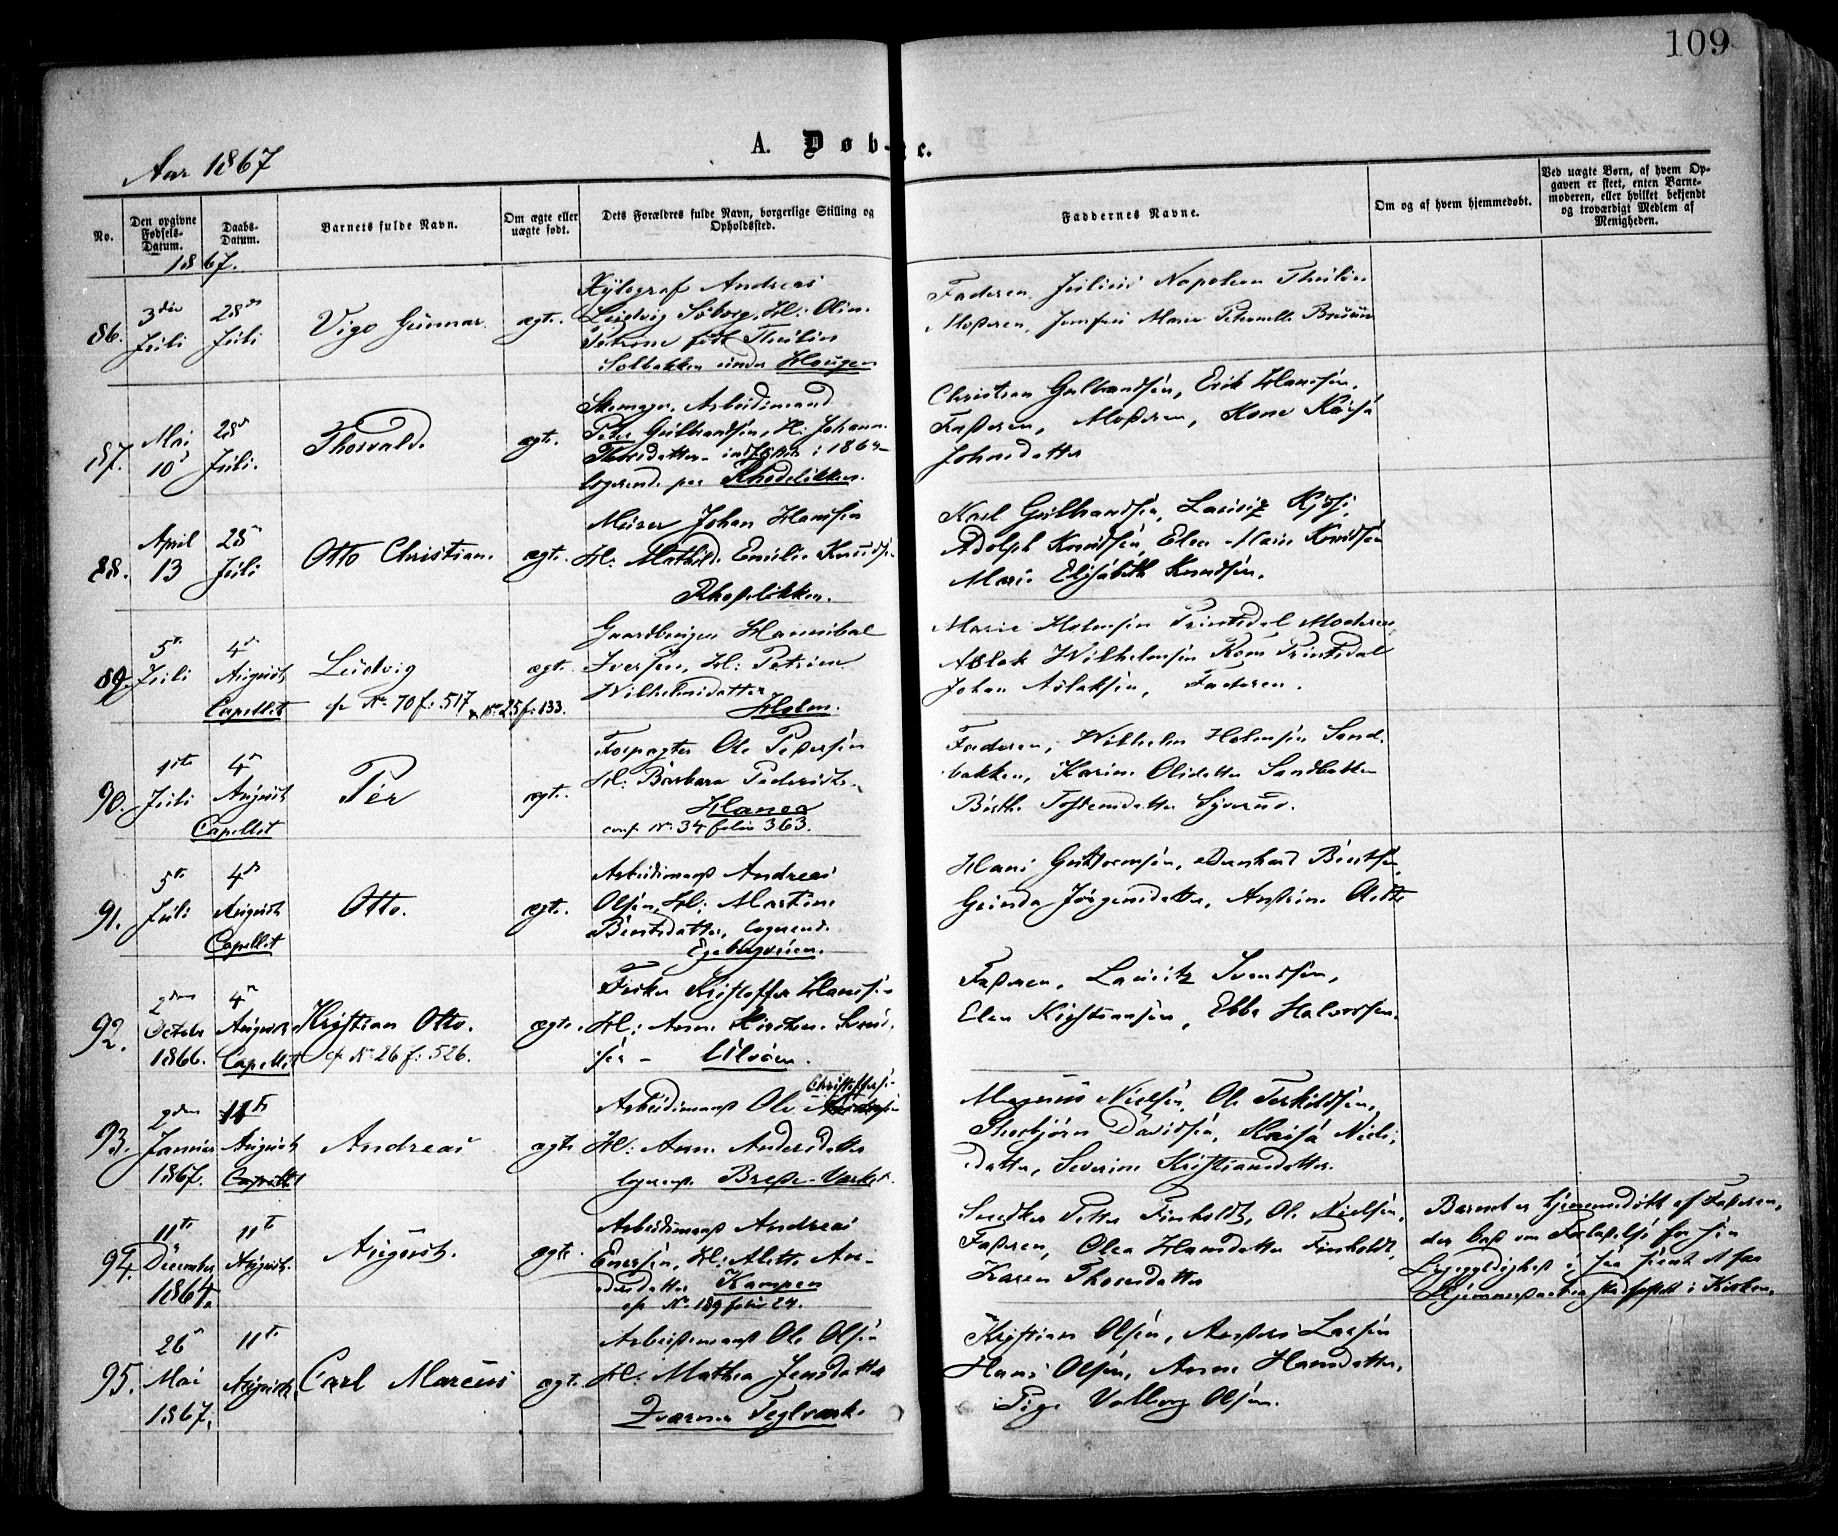 109
A. Døb- e.
Aar 1867
No.
Den opgivne Fødsels-Datum.
Daabs-Datum.
Barnets fulde Navn.
Om ægte eller uægte født.
Dets Forældres fulde Navn, borgerlige Stilling og Opholdssted.
Faddernes Navne.
Om og af hvem hjemmedøbt.
Ved uægte Børn, af hvem Opgaven er skeet, enten Barnemoderen, eller hvilket bekjendt og troværdigt Medlem af Menigheden.
1867.
86.
3die Juli
28de Juli
Vigo Gunnar.
ægte.
Xylograf Andreas
Ludvig Søborg, H: Olin
Petrine født Thulin
Solbakken under Haugen
Faderen, Julius Napoleon Thulin
Moderen, Jomfru Marie Petronelle Bruun
87.
Mai 10d
28d Juli.
Thorvald.
ægt.
Skomager, Arbeidsmand
Peder Gulbrandsen, H: Johann
Thorsdatter
logerende paa Rhodeløkken.
Christian Gulbrandsen, Erik Hansen,
Faderen, Moderen, Kone Kaisa
Johnsdatter
88.
April 13
28 Juli
Otto Christian.
ægt.
Murer Johan Hansen
H: Mathilde Emilie Knudsen
Rhodeløkken.
Karl Gulbrandsen, Lauritz
Adolph Knudsen, Elen Marie Knudsen
Marie Elisabeth Knudsen.
89.
5te Juli
4d August
Capellet
Ludvig
cfr No. 70 f: 517 & No. 25 f: 133.
ægt.
Gaardbruger Hannibal
Iversen, H: Petrine
Wilhelmsdatter
Holm.
Marie Holmsen Printsdal Moderen
Aslak Wilhelmsen Printsdal
Johan Aslaksen, Faderen.
90.
1ste Juli
4d August
Capellet
Per
ægt.
Forpagter Ole Pedersen
H: Barbara Pedersdtr.
conf. No. 34 folio 363.
Faderen, Wilhelm Holmsen Sand-
bakken, Karine Olsdatter Sandbakken
Berthe Tostensdatter
91.
5te Juli
4de August
Capellet
Otto.
ægt.
Arbeidsmand Andreas
Olsen, H: Martine
Berntsdatter, logerende
Egebergveien.
Hans Guttormsen, Bernhard Berntsen
Grinda Jørgensdatter,
92.
2den October
1866.
4d August
Capellet
Kristian Otto.
cf No. 26 f: 526.
ægte.
Fisker Kristoffer Hansen
H: Anne Kirstine Svend-
sen - Ulvøen.
Faderen, Lauritz Svendsen,
Elen Kristiansen, Ebbe Halvorsen.
93.
2den Januar
1867.
11te August
Capellet
Andreas
ægte
Arbeidsmand Ole Christoffersen
H: Anne Andersdatter
logerende
Magnus Nielsen, Ole Terkildsen,
Thorbjørn Davidsen, Kaisa Niels-
datter, Severine Kristiansdatter.
94.
11te December
1864.
11te August.
August.
ægte
Arbeidsmand Andreas
Enersen, H: Alette An-
dersdatter Kampen
cfr No. 189 folio 24.
Snedker Petter Finholdt, Ole Nielsen,
Faderen, Olea Hansdatter Finholdt,
Karen Thorsdatter
Barnet er hjemmedøbt af Faderen,
der bad om Forladelse for sin
Ligegyldighed i saa
Hjemmedaaben stadfæstet i Kirken.
95.
26d Mai
1867.
11te August
Carl Marcus
ægt.
Arbeidsmand Ole Olsen
H: Mathea Jensdatter
Qværner Teglverk.
Kristian Olsen, Anders Larsen
Hans Olsen, Anne Hansdatter,
Pige Valborg Olsen.